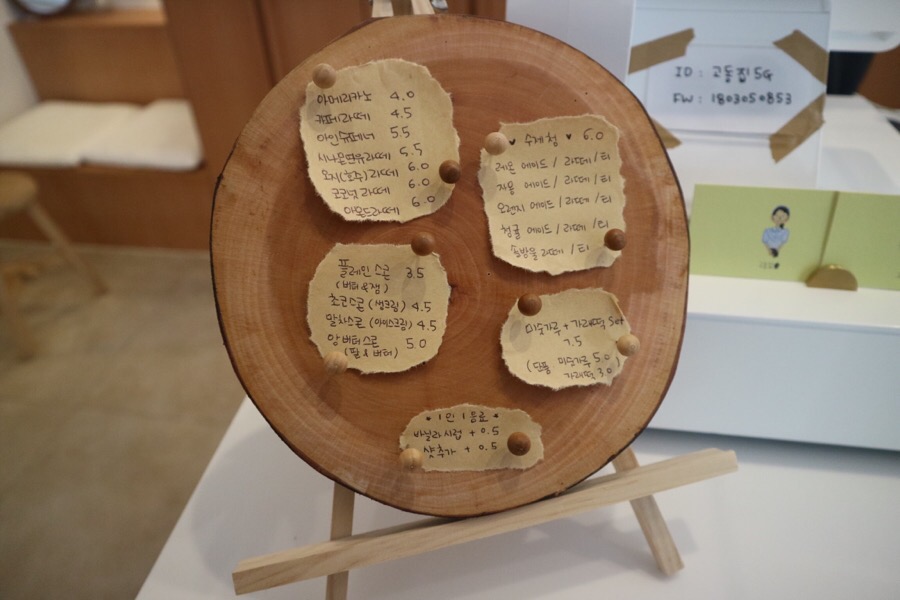 아메리카노 4.0
카페라떼 4.5
아인슈페너 5.5
시나몬연유라떼 5.5
오지(호주)라떼 6.0
코코넛라떼 6.0
아몬드라떼 6.0
♥ 수제청 ♥ 6.0
레몬 에이드 / 라떼 / 티
자몽 에이드 / 라떼 / 티
오렌지 에이드 / 라떼 / 티
청귤 에이드 / 라떼 / 티
솔방울 라떼 / 티
플레인스콘 3.5
(버터&잼)
초코스콘 (생크림) 4.5
말차스콘 (아이스크림) 4.5
앙버터스콘 5.0
(팥&버터)
미숫가루 + 가래떡 Set
7.5
(단품 미숫가루 5.0
가래떡 3.0)
* 1인 1음료 *
바닐라시럽 + 0.5
샷추가 + 0.5
ID : 고동집5G
PW : 1803050853